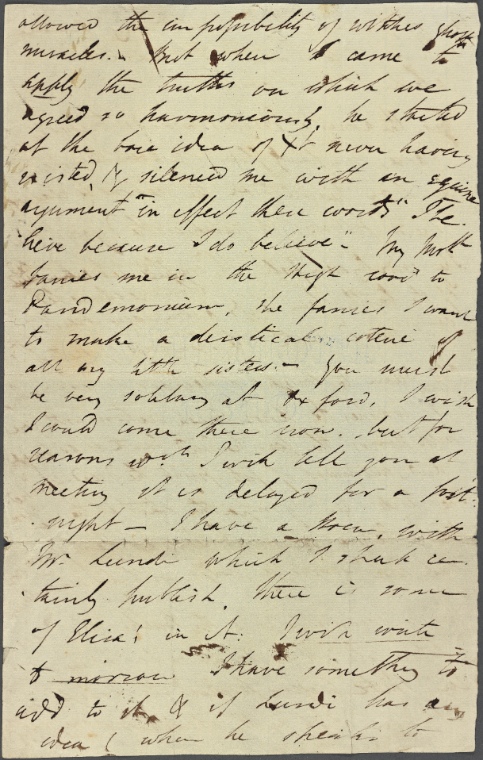 allowed the impossibility of witches ghosts
miracles. But when I came to
apply the truths on which we
agreed so harmoniously he started
at the bare idea of Xt never having
existed, & silenced me with an equine
argument in effect these words "I be
lieve because I do believe". My Moth
fancies me in the High road to
Pandemonium, she fancies I want
to make a deistical coterie of
all my little sisters — You must
be very solitary at Oxford, I wish
I could come there now. but for
reasons wch. I will tell you at
meeting it is delayed for a fort
night — I have a Poem, with
Mr. Lundi which I shall cer
tainly publish. there is some
of Eliza's in it. I will write
tomorrow I have something to
add to it & if Lundi has any
idea (when he speaks to